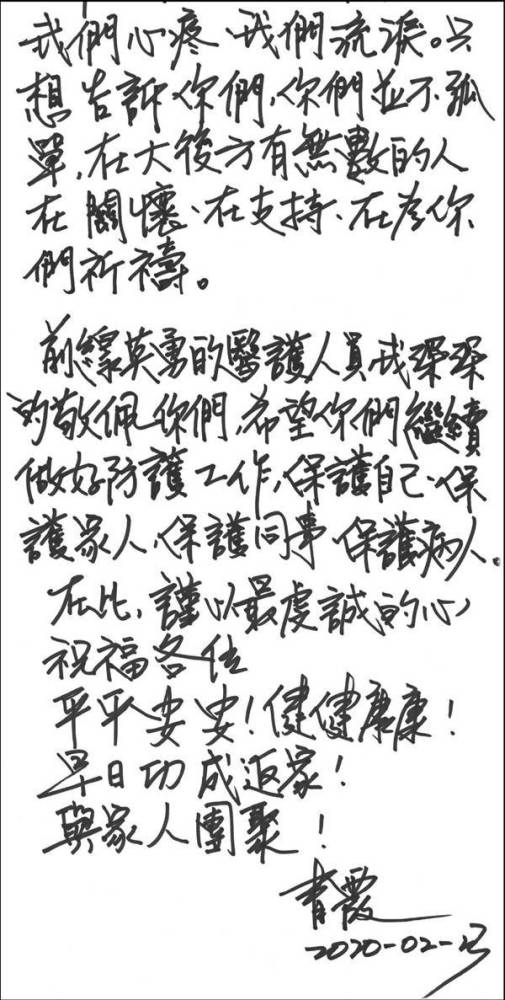 我們心疼、我們流淚。只
想告訴你們,你們並不孤
單,在大後方有無數的人
在關懷、在支持、在為你
們祈禱。
前線英勇的醫護人員我深深
的敬佩你們,希望你們繼續
做好防護工作,保護自己、保
護家人、保護同事、保護病人。
在此,謹以最虔誠的心
祝福各位
平平安安!健健康康!
早日功成返家!
與家人團聚!
青霞
2020-02-